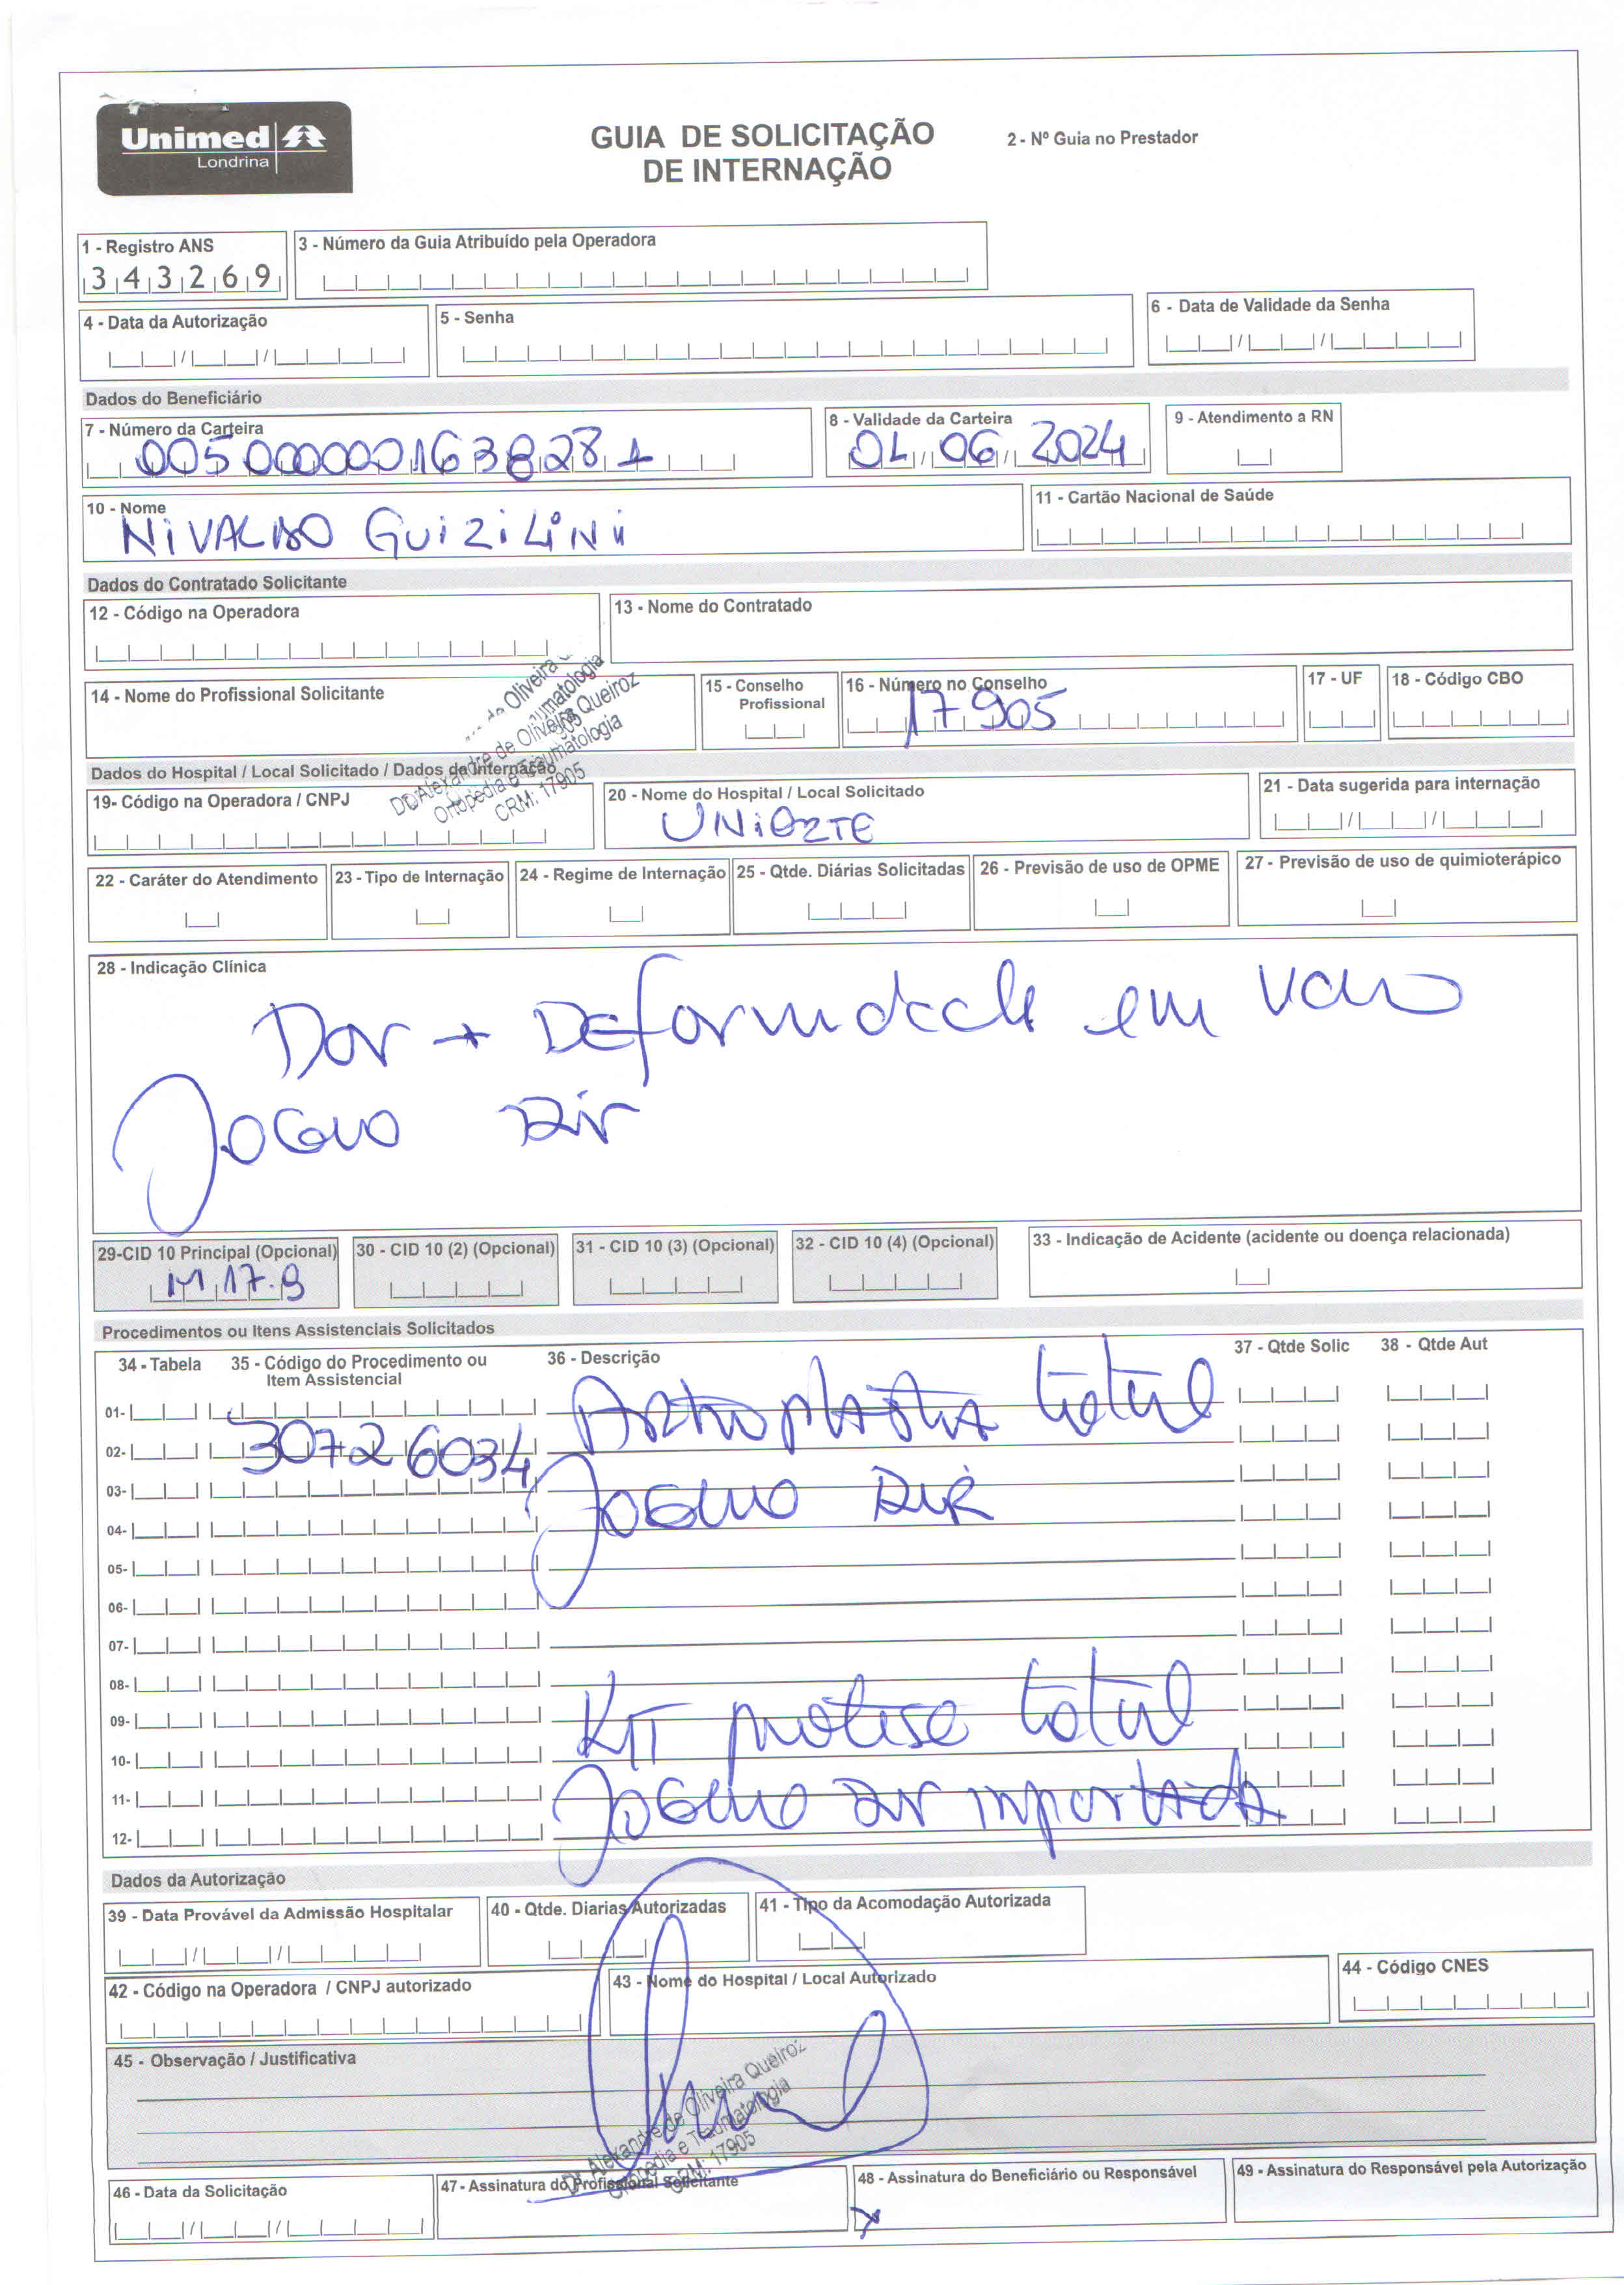 Unimed
Londrina
GUIA DE SOLICITAÇÃO
DE INTERNAÇÃO
2 - Nº Guia no Prestador
1 - Registro ANS
343269
3 - Número da Guia Atribuído pela Operadora
4 - Data da Autorização
5 - Senha
6 - Data de Validade da Senha
Dados do Beneficiário
7 - Número da Carteira
8 - Validade da Carteira
06 2024
9 - Atendimento a RN
10 - Nome
NIVALDO GUIZILINI
11 - Cartão Nacional de Saúde
Dados do Contratado Solicitante
12 - Código na Operadora
13 - Nome do Contratado
14 - Nome do Profissional Solicitante
15 - Conselho Profissional
16 - Número no Conselho
17905
17 - UF
18 - Código CBO
Dr. Alexandre de Oliveira Queiroz
Ortopedia e Traumatologia
CRM: 17905
Dados do Hospital / Local Solicitado / Dados da Internação
19- Código na Operadora / CNPJ
20 - Nome do Hospital / Local Solicitado
UNIORTE
21 - Data sugerida para internação
22 - Caráter do Atendimento
23 - Tipo de Internação
24 - Regime de Internação
25 - Qtde. Diárias Solicitadas
26 - Previsão de uso de OPME
27 - Previsão de uso de quimioterápico
28 - Indicação Clínica
Dor + Deformidade em varo
Joelho Dir
29-CID 10 Principal (Opcional)
M17.9
30 - CID 10 (2) (Opcional)
31 - CID 10 (3) (Opcional)
32 - CID 10 (4) (Opcional)
33 - Indicação de Acidente (acidente ou doença relacionada)
Procedimentos ou Itens Assistenciais Solicitados
34 - Tabela
35 - Código do Procedimento ou Item Assistencial
36 - Descrição
37 - Qtde Solic
38 - Qtde Aut
01-
Artroplastia total
02-
30726034
03-
Joelho Dir
04-
05-
06-
07-
08-
09-
Kit protese total
10-
11-
Joelho Dir importada
12-
Dados da Autorização
39 - Data Provável da Admissão Hospitalar
40 - Qtde. Diarias Autorizadas
41 - Tipo da Acomodação Autorizada
42 - Código na Operadora / CNPJ autorizado
43 - Nome do Hospital / Local Autorizado
44 - Código CNES
45 - Observação / Justificativa
Dr. Alexandre de Oliveira Queiroz
Ortopedia e Traumatologia
CRM: 17905
46 - Data da Solicitação
47 - Assinatura do Profissional Solicitante
48 - Assinatura do Beneficiário ou Responsável
x
49 - Assinatura do Responsável pela Autorização